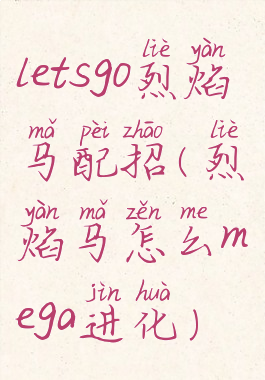 liè yàn
letsgo烈焰
mǎ pèi zhāo liè
马配招(烈
yàn mǎ zěn me
焰马怎么m
jìn huà
ega进化)